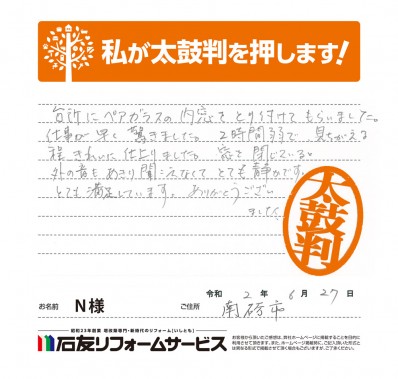 私が太鼓判を押します!
台所にペアガラスの内窓をとり付けてもらいました。
仕事が早く驚きました。2時間弱で見ちがえる
程きれいに仕上りました。窓を閉じていると
外の音もあまり聞こえなくてとても静かです。
とても満足しています。ありがとうござい
ました。
太鼓判
令和 2 年 6 月 27 日
お名前 N様 ご住所 南砺市
昭和23年創業 増改築専門・新時代のリフォーム[いしとも]
石友リフォームサービス